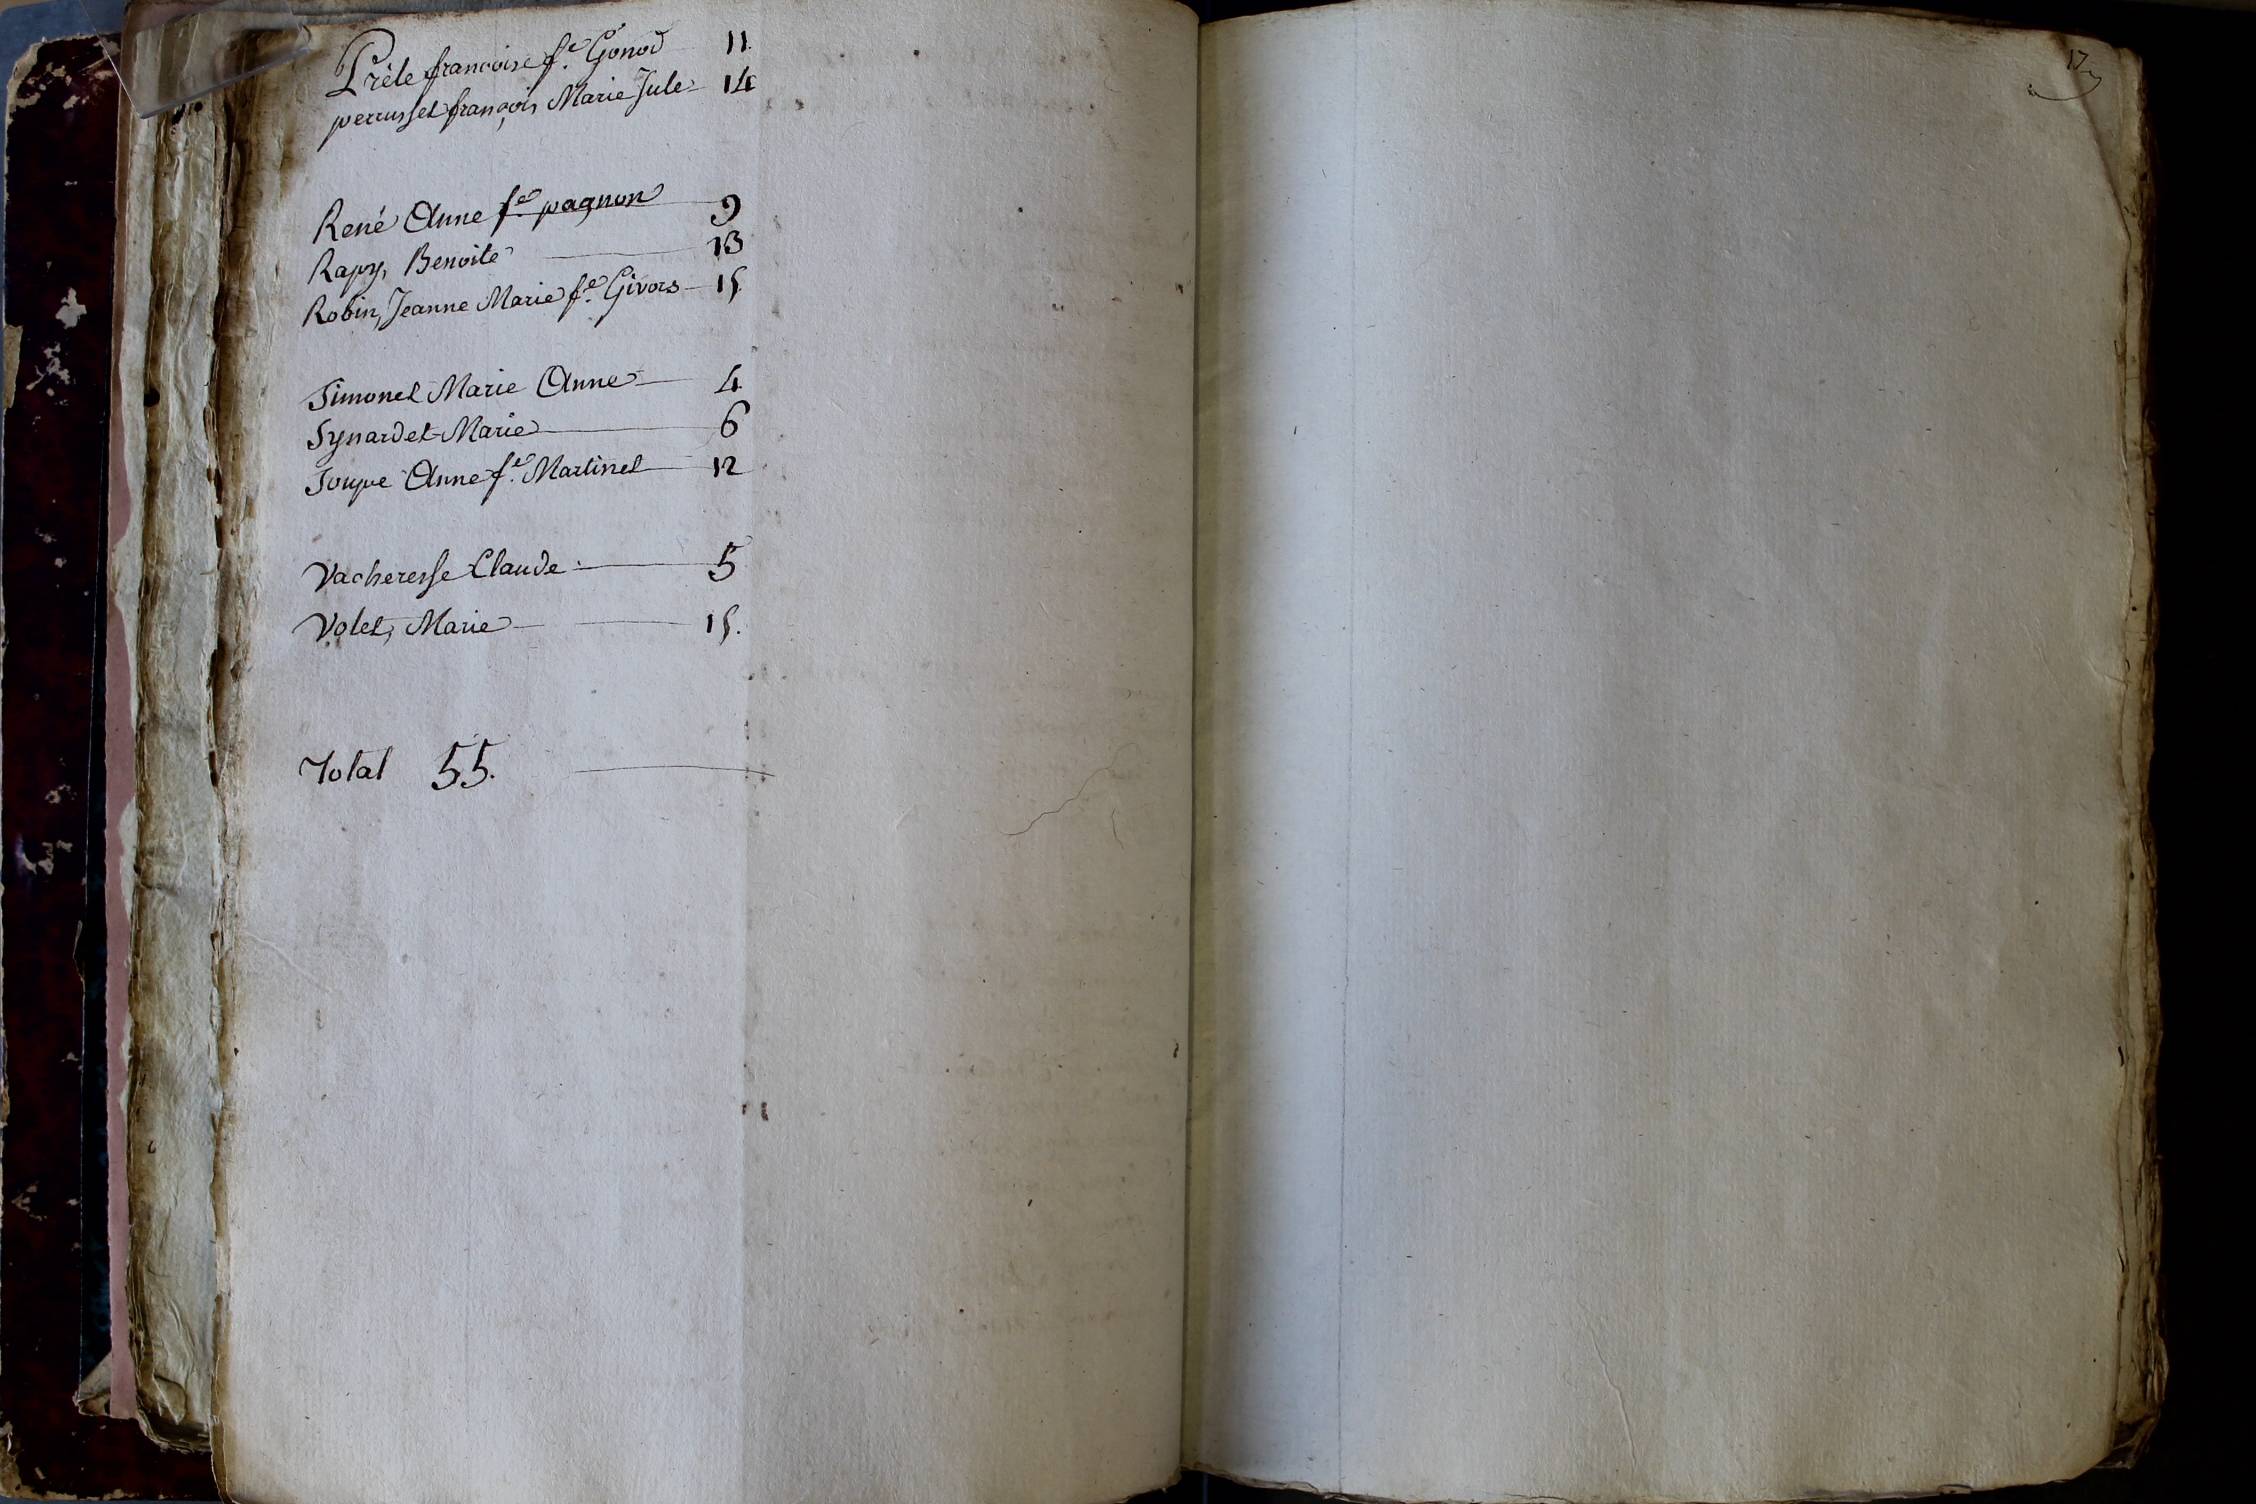 Prèle francoise f.e Gonod 11.
perrusset françois Marie Jule 14
René Anne f.e pagnon 9
Rapy, Benoite 13
Robin, Jeanne Marie f.e Givors 15.
Simonet Marie Anne 4.
Synardet Marie 6
Soupe Anne f.e Martinet 12
Vacheresse Claude 5
Volet, Marie 15.
Total 55.
17